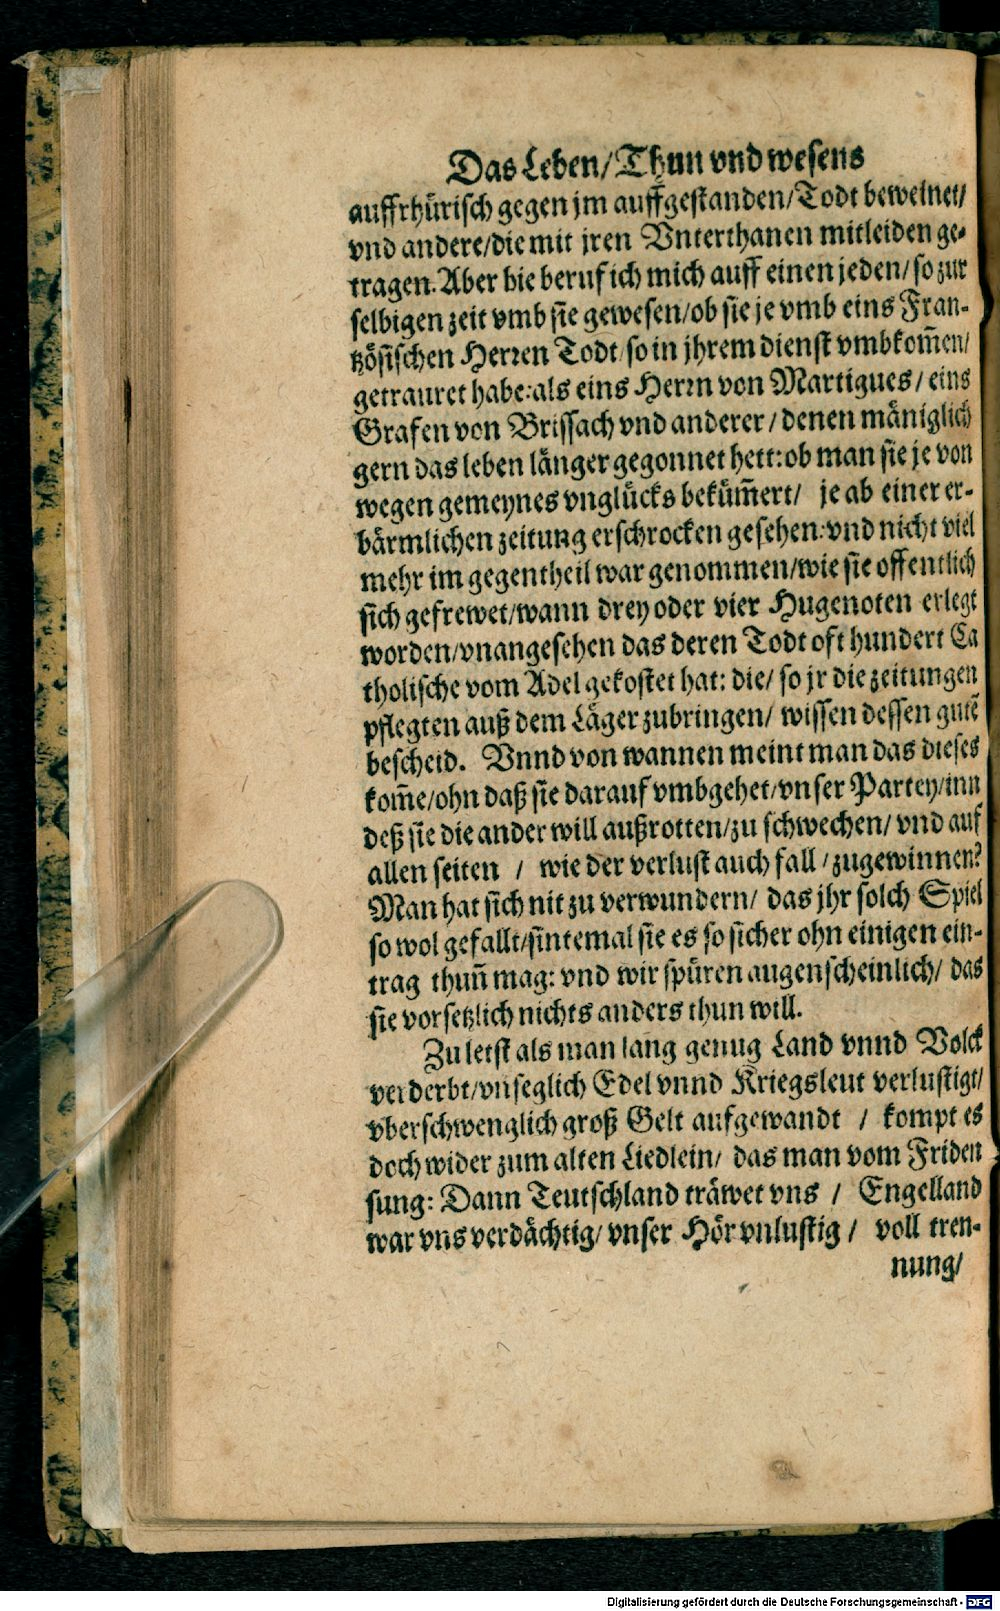 Das Leben/Thun vnd wesens
auffrhürisch gegen jm auffgestanden/Todt beweinet/
vnd andere/die mit jren Vnterthanen mitleiden ge-
tragen. Aber hie beruf ich mich auff einen jeden/so zur
selbigen zeit vmb sie gewesen/ob sie je vmb eins Fran-
tzösischen Herren Todt/so in jhrem dienst vmbkom̃en/
getrauret habe:als eins Herrn von Martigues/eins
Grafen von Brissach vnd anderer/denen mäniglich
gern das leben länger gegonnet hett:ob man sie je von
wegen gemeynes vnglücks beküm̃ert/ je ab einer er-
bärmlichen zeitung erschrocken gesehen:vnd nicht viel
mehr im gegentheil war genommen/wie sie offentlich
sich gefrewet/wann drey oder vier Hugenoten erlegt
worden/vnangesehen das deren Todt oft hundert Ca
tholische vom Adel gekostet hat: die/ so jr die zeitungen
pflegten auß dem Läger zubringen/ wissen dessen gutẽ
bescheid. Vnnd von wannen meint man das dieses
kom̃e/ohn daß sie darauf vmbgehet/vnser Partey/inn
deß sie die ander will außrotten/zu schwechen/ vnd auf
allen seiten / wie der verlust auch fall/zugewinnen?
Man hat sich nit zu verwundern/ das jhr solch Spiel
so wol gefallt/sintemal sie es so sicher ohn einigen ein-
trag thuñ mag: vnd wir spüren augenscheinlich/ das
sie vorsetzlich nichts anders thun will.
Zu letst als man lang genug Land vnnd Volck
verderbt/vnseglich Edel vnnd Kriegsleut verlustigt/
vberschwenglich groß Gelt aufgewandt / kompt es
doch wider zum alten Liedlein/ das man vom Friden
sung: Dann Teutschland träwet vns / Engelland
war vns verdächtig/vnser Hör vnlustig / voll tren-
nung/
Digitalisierung gefördert durch die Deutsche Forschungsgemeinschaft - DFG